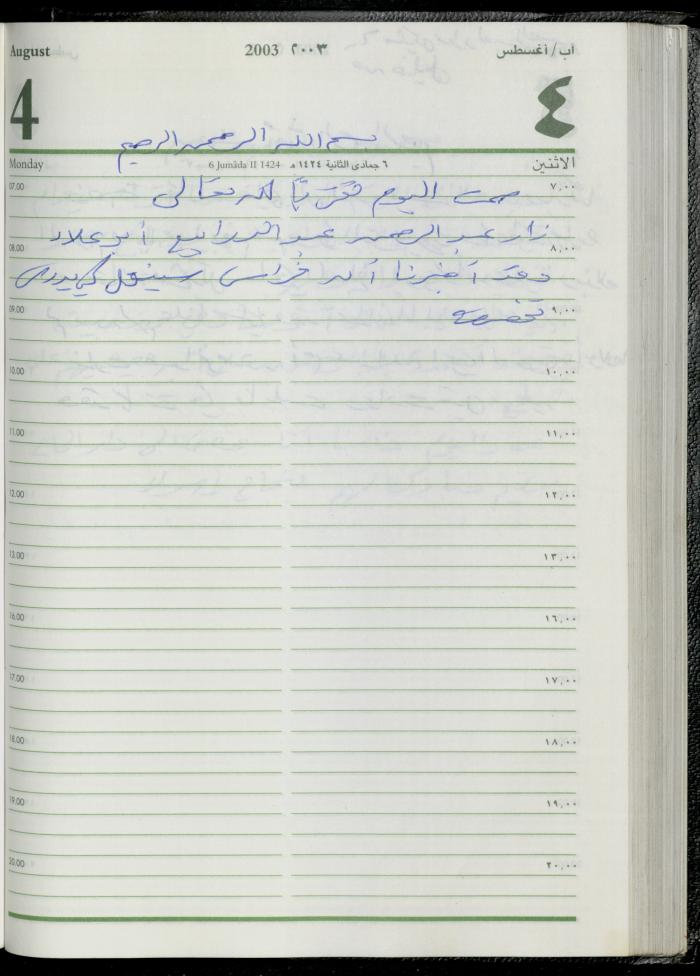 August 2003 ٢٠٠٣ آب/أغسطس
4 ٤
بسم الله الرحمن الرحيم
Monday 6 Jumâda II 1424 ٦ جمادى الثانية ١٤٢٤ هـ الاثنين
07.00 صمت اليوم تقربًا لله تعالى ٧,٠٠
زار عبد الرحمن عبد البديع أبو علاء
08.00 ٨,٠٠
وقد أخبرنا أن فراس سينقل كي يدرس
09.00 ٩,٠٠
تخصصه
10.00 ١٠,٠٠
11.00 ١١,٠٠
12.00 ١٢,٠٠
13.00 ١٣,٠٠
16.00 ١٦,٠٠
17.00 ١٧,٠٠
18.00 ١٨,٠٠
19.00 ١٩,٠٠
20.00 ٢٠,٠٠